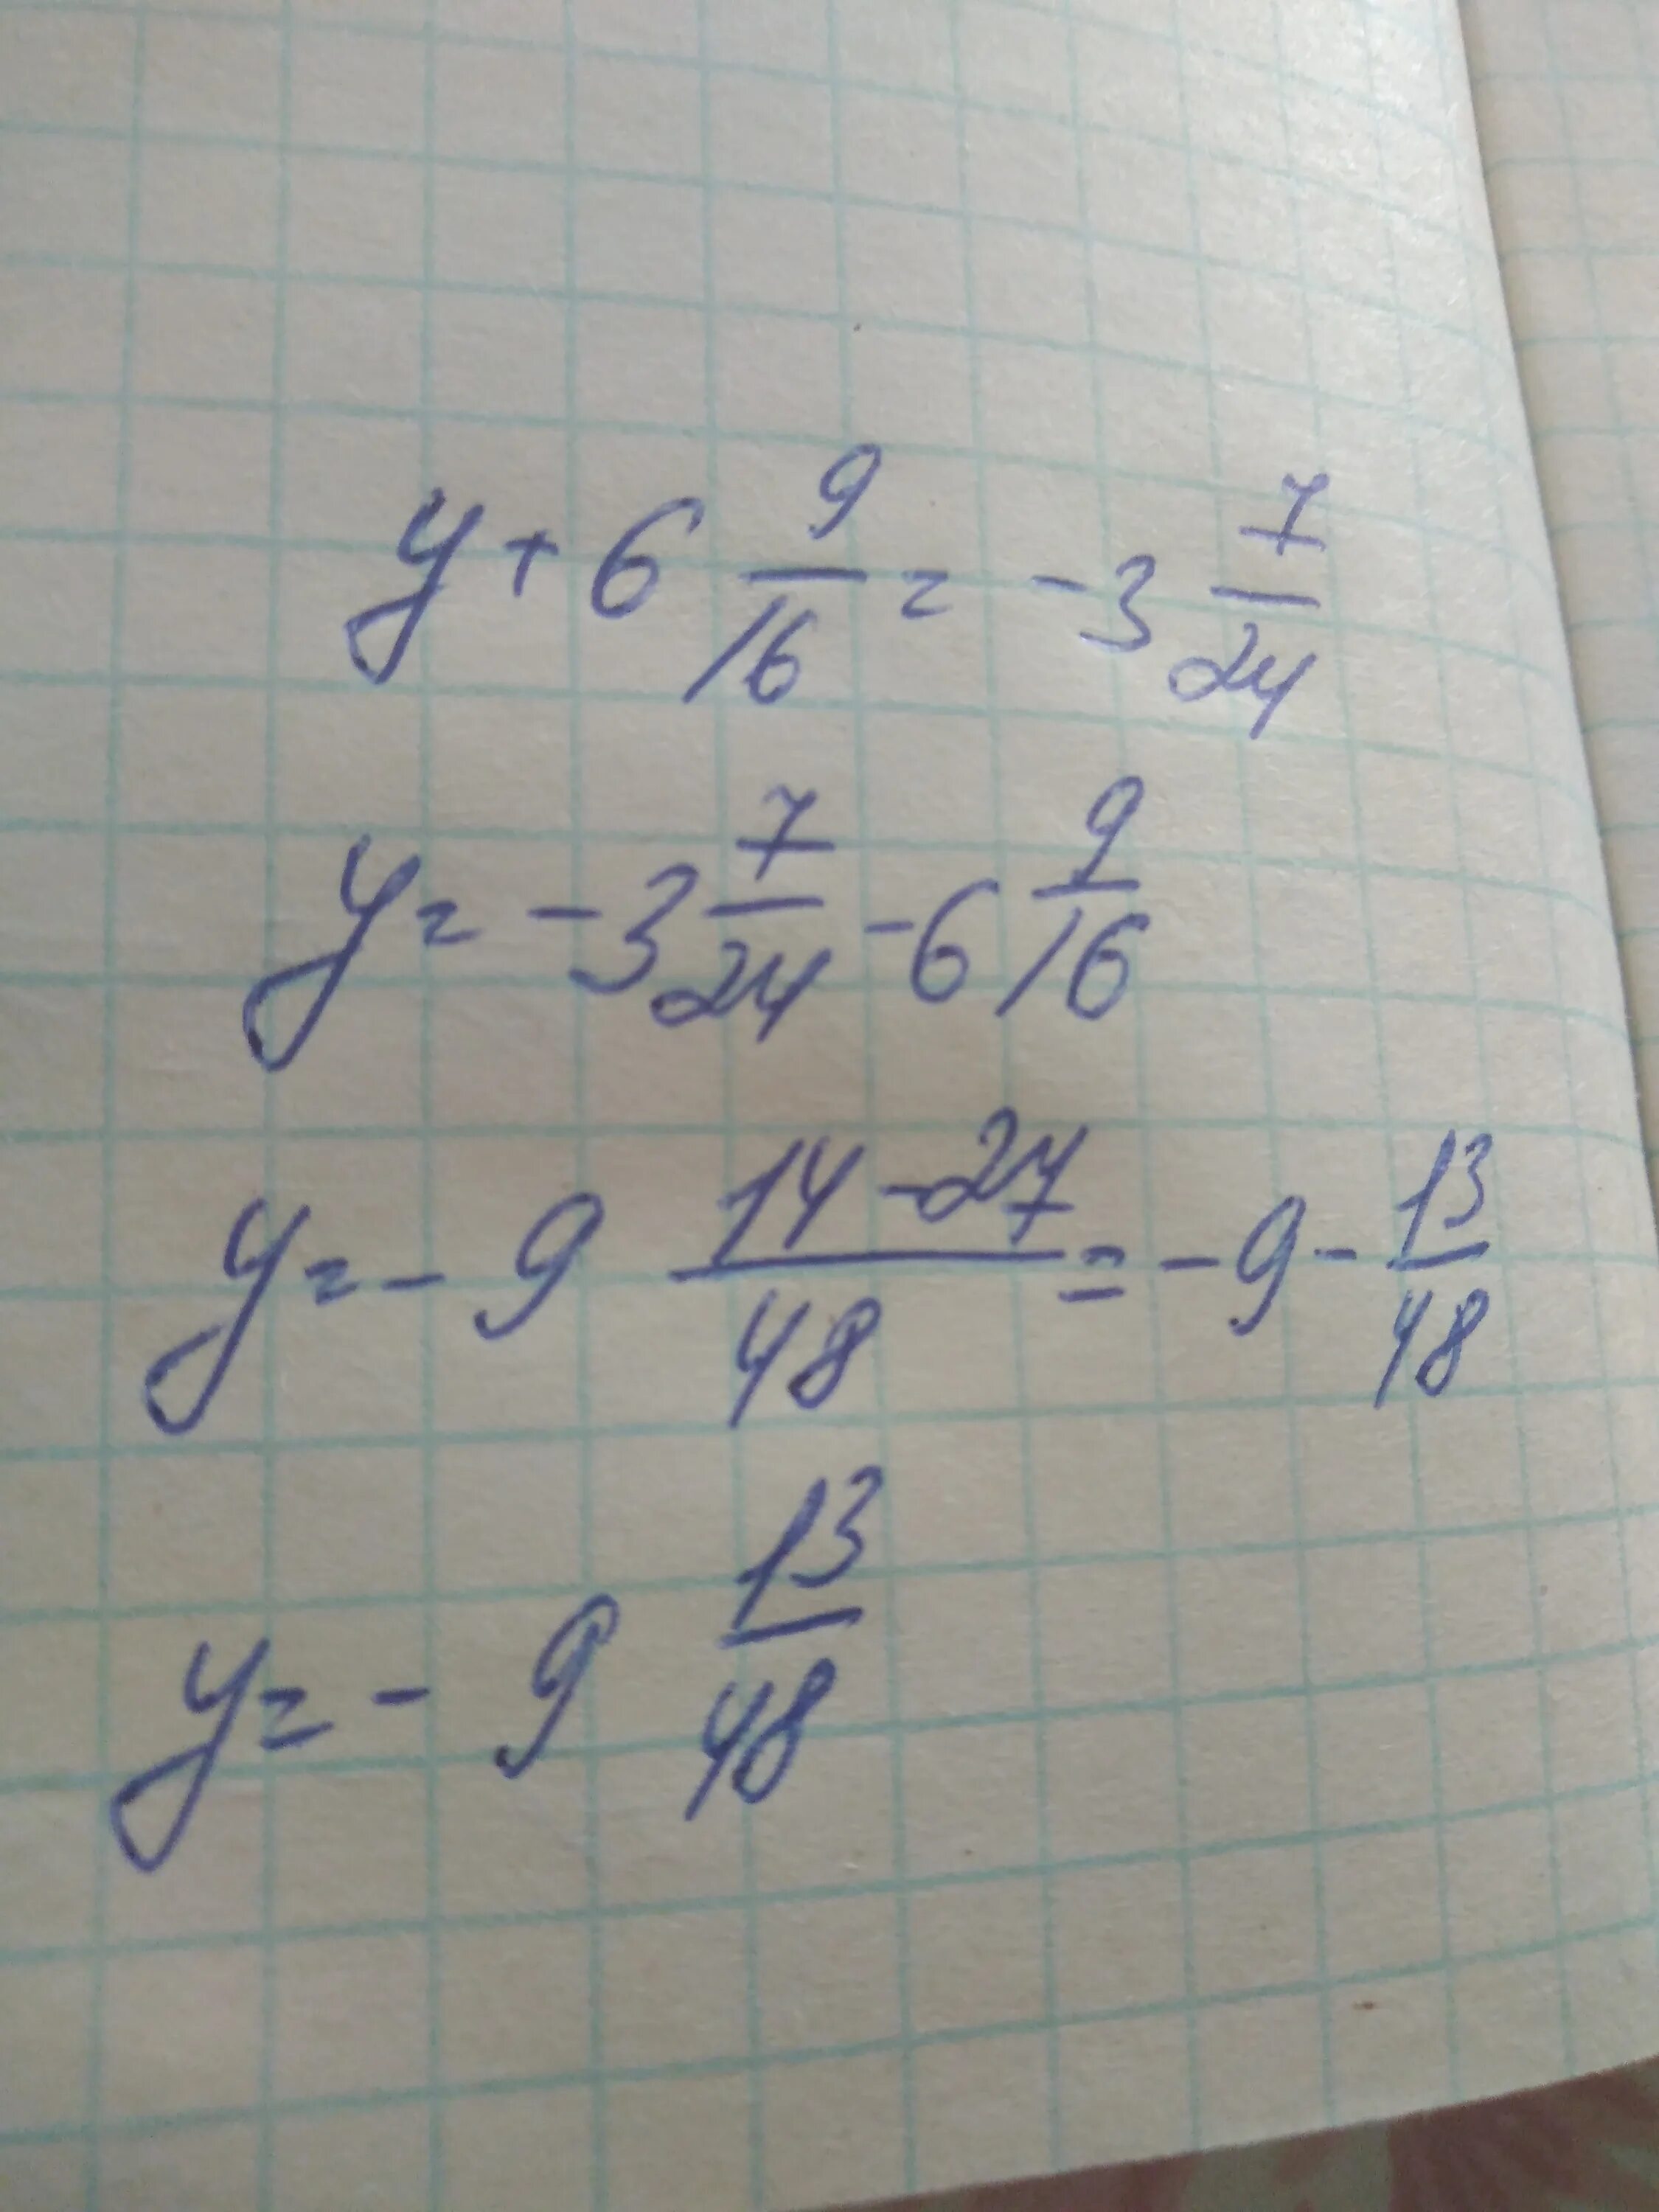 y + 6 9/16 = -3 7/24
y = -3 7/24 - 6 9/16
y = - 9 14-27/48 = -9 - 13/48
y = - 9 13/48